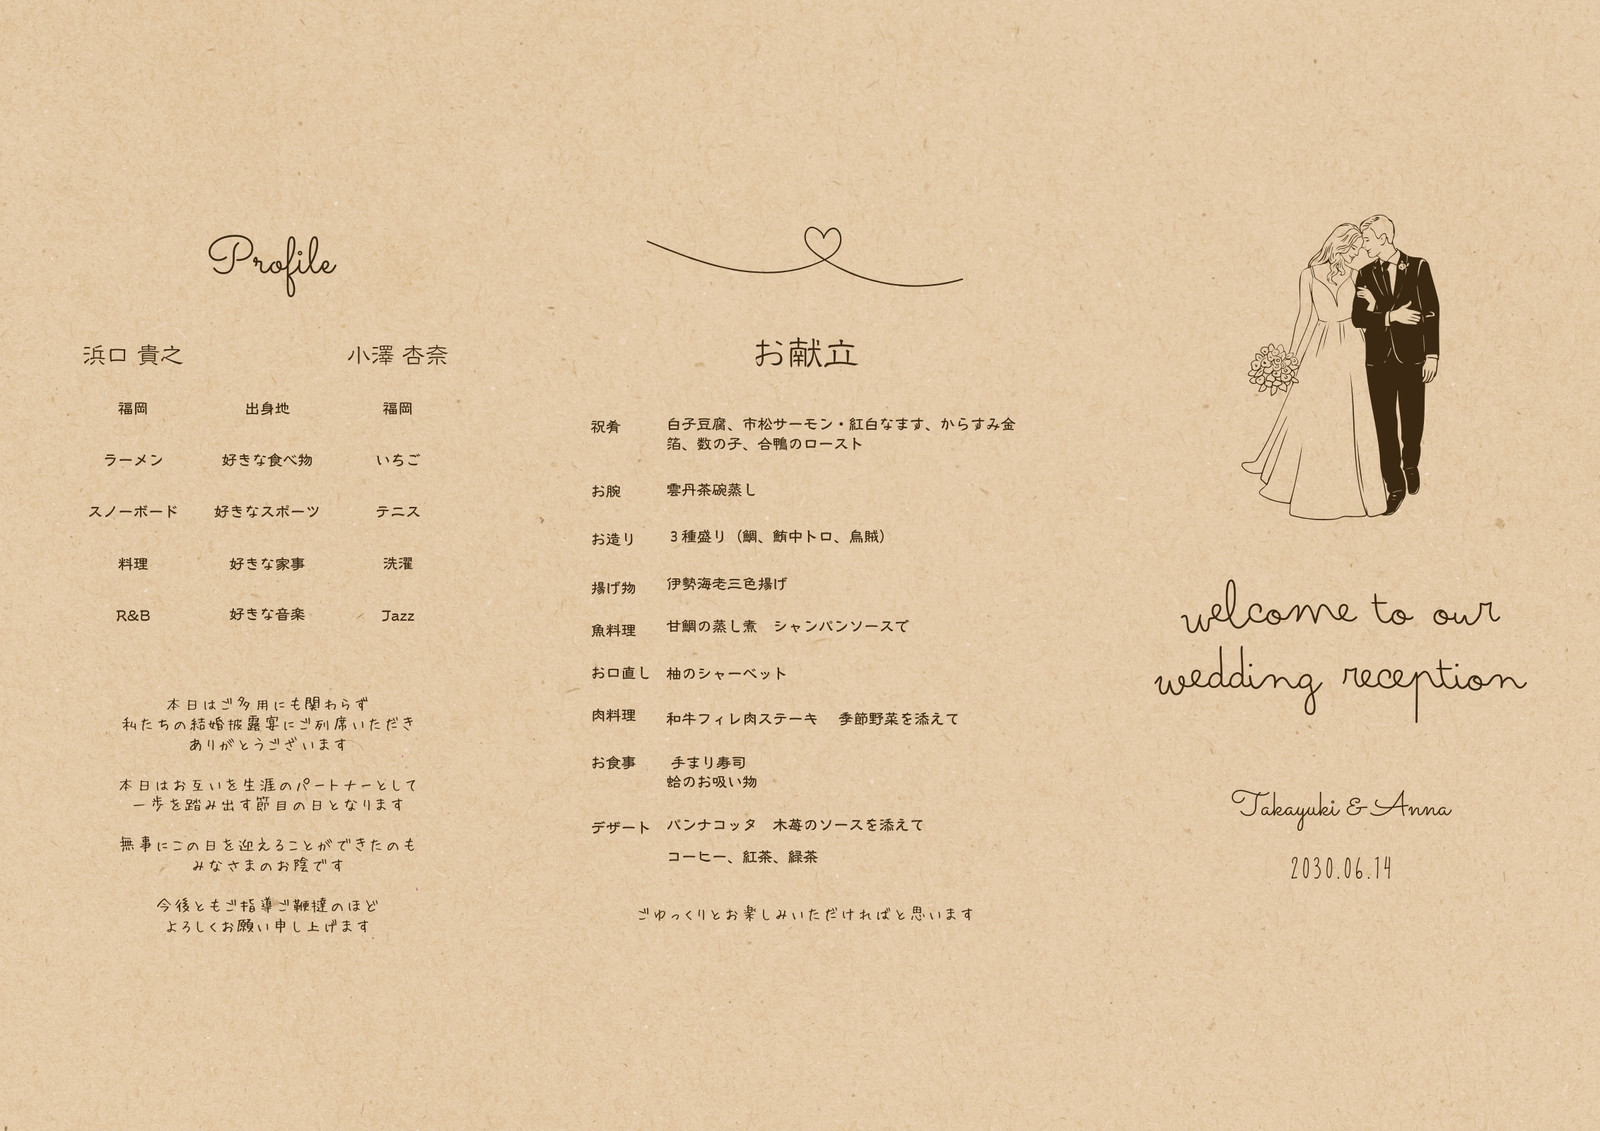 Profile
浜口 貴之 小澤 杏奈
福岡 出身地 福岡
ラーメン 好きな食べ物 いちご
スノーボード 好きなスポーツ テニス
料理 好きな家事 洗濯
R&B 好きな音楽 Jazz
本日はご多用にも関わらず
私たちの結婚披露宴にご列席いただき
ありがとうございます
本日はお互いを生涯のパートナーとして
一歩を踏み出す節目の日となります
無事にこの日を迎えることができたのも
みなさまのお陰です
今後ともご指導ご鞭撻のほど
よろしくお願い申し上げます
お献立
祝肴 白子豆腐、市松サーモン・紅白なます、からすみ金
箔、数の子、合鴨のロースト
お腕 雲丹茶碗蒸し
お造り 3種盛り（鯛、鮪中トロ、烏賊）
揚げ物 伊勢海老三色揚げ
魚料理 甘鯛の蒸し煮　シャンパンソースで
お口直し 柚のシャーベット
肉料理 和牛フィレ肉ステーキ　季節野菜を添えて
お食事 手まり寿司
蛤のお吸い物
デザート パンナコッタ　木苺のソースを添えて
コーヒー、紅茶、緑茶
ごゆっくりとお楽しみいただければと思います
welcome to our
wedding reception
Takayuki & Anna
2030.06.14